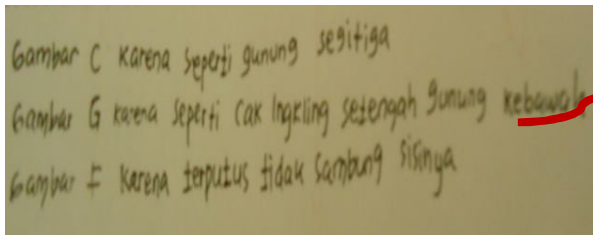 Gambar C karena seperti gunung segitiga
Gambar G karena seperti Cak Ingkling setengah gunung kebawah
Gambar F karena terputus tidak sambung sisinya